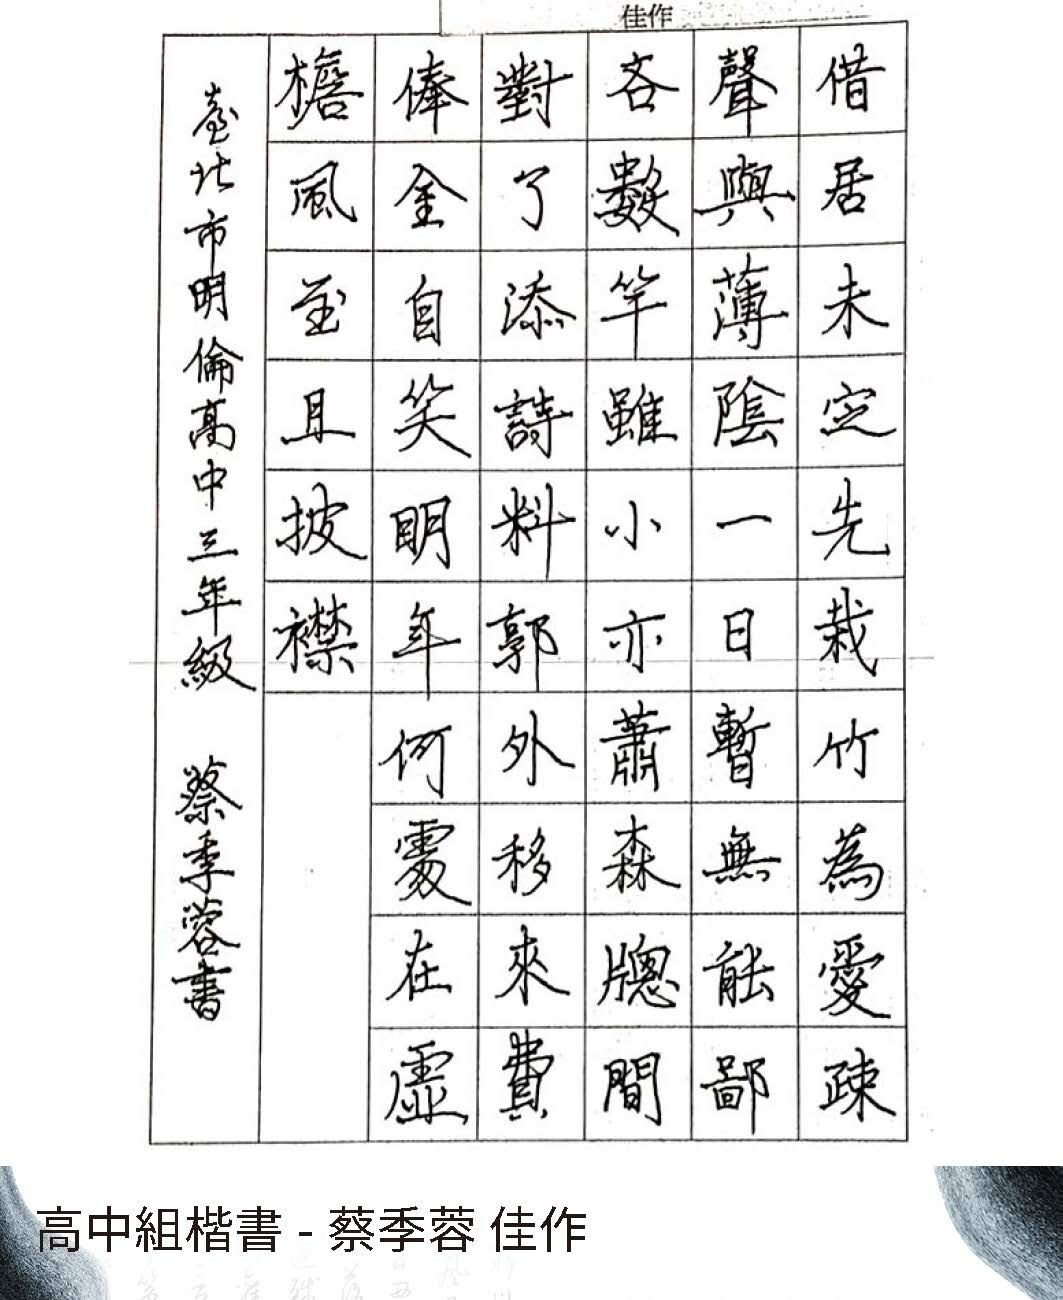 佳作
借居未定先栽竹為愛疎
聲與薄陰一日暫無能鄙
吝數竿雖小亦蕭森牕間
對了添詩料郭外移來費
俸金自笑明年何處在虛
檐風至且披襟
臺北市明倫高中三年級 蔡季蓉書
高中組楷書 - 蔡季蓉 佳作